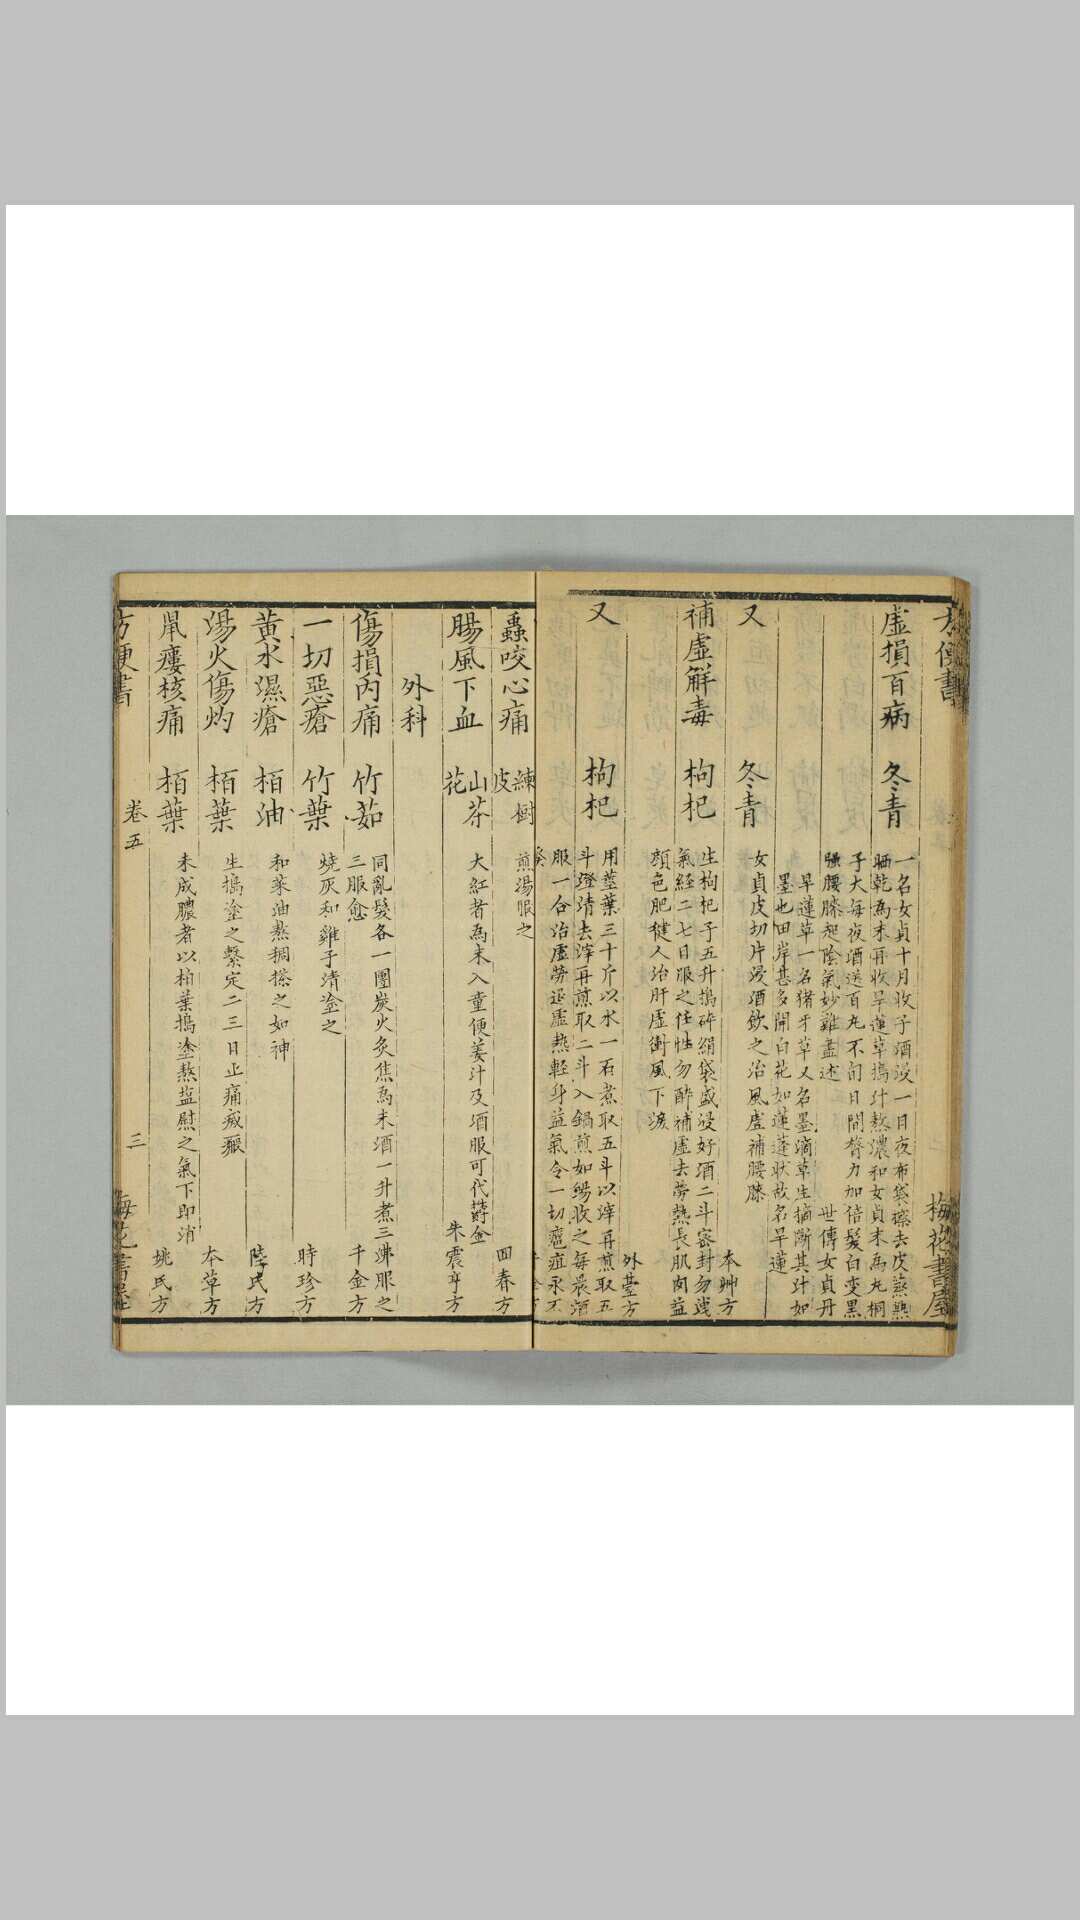 方便書
梅花書屋
虛損百病 冬青
一名女貞十月收子酒浸一日夜布袋擦去皮蒸熟
晒乾為末再收旱蓮草搗汁熬濃和女貞末為丸桐
子大每夜酒送百丸不旬日間膂力加倍髮白變黑
強腰膝起陰氣妙難盡述 世傳女貞丹
旱蓮草一名猪牙草又名墨滴草生摘斷其汁如
墨也田岸甚多開白花如蓮蓬狀故名旱蓮
又 冬青
女貞皮切片浸酒飲之治風虛補腰膝 本艸方
補虛解毒 枸杞
生枸杞子五升搗碎絹袋盛浸好酒二斗密封勿洩
氣經二七日服之任性勿醉補虛去勞熱長肌肉益
顏色肥健人治肝虛衝風下淚 外臺方
又 枸杞
用莖葉三十斤以水一石煮取五斗以滓再煎取五
斗澄清去滓再煎取二斗入鍋煎如餳收之每晨酒
服一合治虛勞退虛熱輕身益氣令一切癰疽永不
發
蟲咬心痛 練樹皮 煎湯服之 回春方
腸風下血 山茶花 大紅者為末入童便姜汁及酒服可代欝金 朱震亨方
外科
傷損內痛 竹茹
同亂髮各一團炭火灸焦為末酒一升煮三沸服之
三服愈 千金方
一切惡瘡 竹葉 燒灰和雞子清塗之 時珍方
黃水濕瘡 栢油 和菜油熬稠搽之如神 陸氏方
湯火傷灼 栢葉 生搗塗之繫定二三日止痛滅瘢 本草方
鼠瘻核痛 栢葉 未成膿者以柏葉搗塗熬盐熨之氣下即消 姚氏方
方便書
卷五
三
梅花書屋